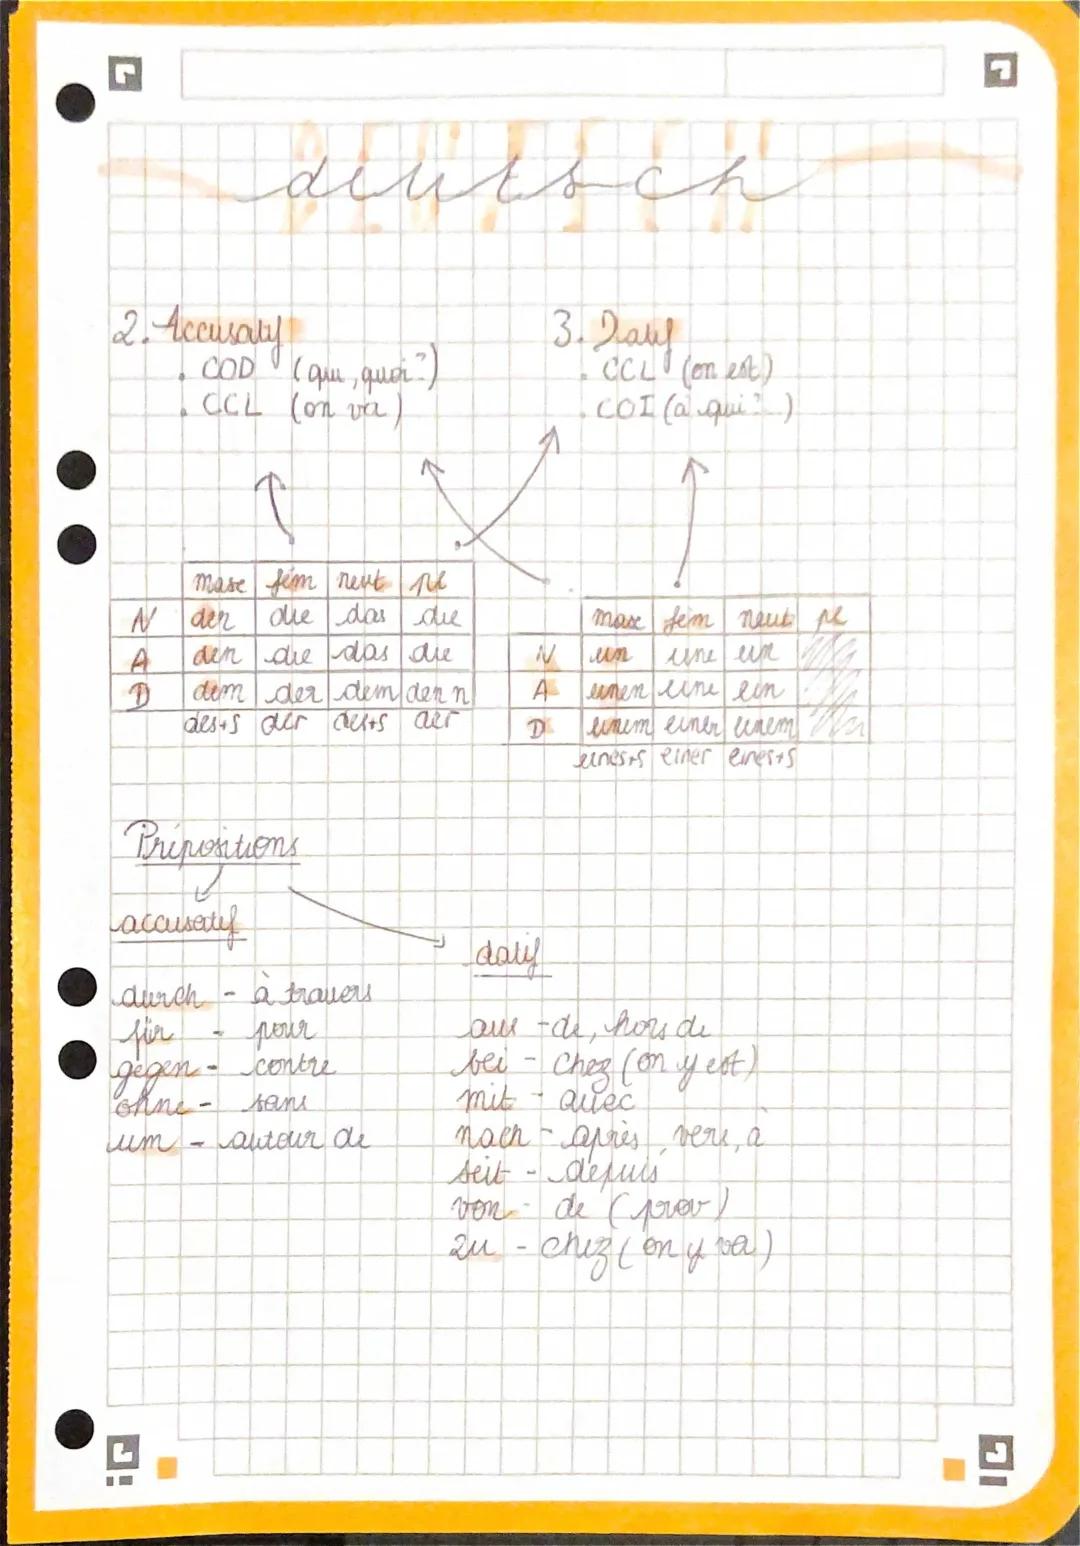 DEUTSCH
deutsch
2. Accusatif
. COD (qui, quoi?)
. CCL (on va)
3. Datif
. CCL (on est)
. COI (à qui?...)
masc fém neut pl
N der die das die
A den die das die
D dem der dem den n
des+s der des+s der
masc fem neut pl
N un une un
A einen eine ein
D einem einer einem
eines+s einer eines+s
Prépositions
accusatif
durch - à travers
für - pour
gegen - contre
ohne - sans
um - autour de
datif
aus - de, hors de
bei - chez (on y est)
mit - avec
nach - après, vers, à
seit - depuis
von - de (prov)
zu - chez (on y va)